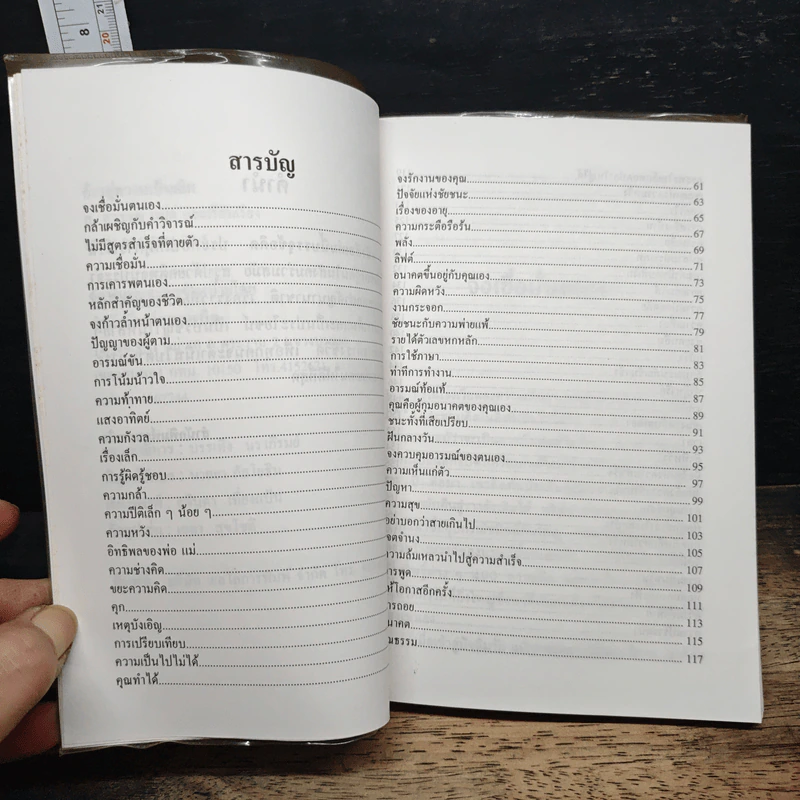 8
21
20
สารบัญ
จงเชื่อมั่นตนเอง
กล้าเผชิญกับคำวิจารณ์
ไม่มีสูตรสำเร็จที่ตายตัว
ความเชื่อมั่น
การเคารพตนเอง
หลักสำคัญของชีวิต
จงก้าวล้ำหน้าตนเอง
ปัญญาของผู้ตาม
อารมณ์ขัน
การโน้มน้าวใจ
ความท้าทาย
แสงอาทิตย์
ความกังวล
เรื่องเล็ก
การรู้ผิดรู้ชอบ
ความกล้า
ความปีติเล็ก ๆ น้อย ๆ
ความหวัง
อิทธิพลของพ่อ แม่
ความช่างคิด
ขยะความคิด
คุก
เหตุบังเอิญ
การเปรียบเทียบ
ความเป็นไปไม่ได้
คุณทำได้
จงรักงานของคุณ 61
ปัจจัยแห่งชัยชนะ 63
เรื่องของอายุ 65
ความกระตือรือร้น 67
พลัง 69
ลิฟต์ 71
อนาคตขึ้นอยู่กับคุณเอง 73
ความผิดหวัง 75
งานกระจอก 77
ชัยชนะกับความพ่ายแพ้ 79
รายได้ตัวเลขหกหลัก 81
การใช้ภาษา 83
ท่าทีการทำงาน 85
อารมณ์ท้อแท้ 87
คุณคือผู้กุมอนาคตของคุณเอง 89
ชนะทั้งที่เสียเปรียบ 91
ฝันกลางวัน 93
จงควบคุมอารมณ์ของตนเอง 95
ความเห็นแก่ตัว 97
ปัญหา 99
ความสุข 101
อย่าบอกว่าสายเกินไป 103
จตจำนง 105
วามล้มเหลวนำไปสู่ความสำเร็จ 107
ารพูด 109
ห้โอกาสอีกครั้ง 111
ารถอย 113
นาคต 115
ณธรรม 117